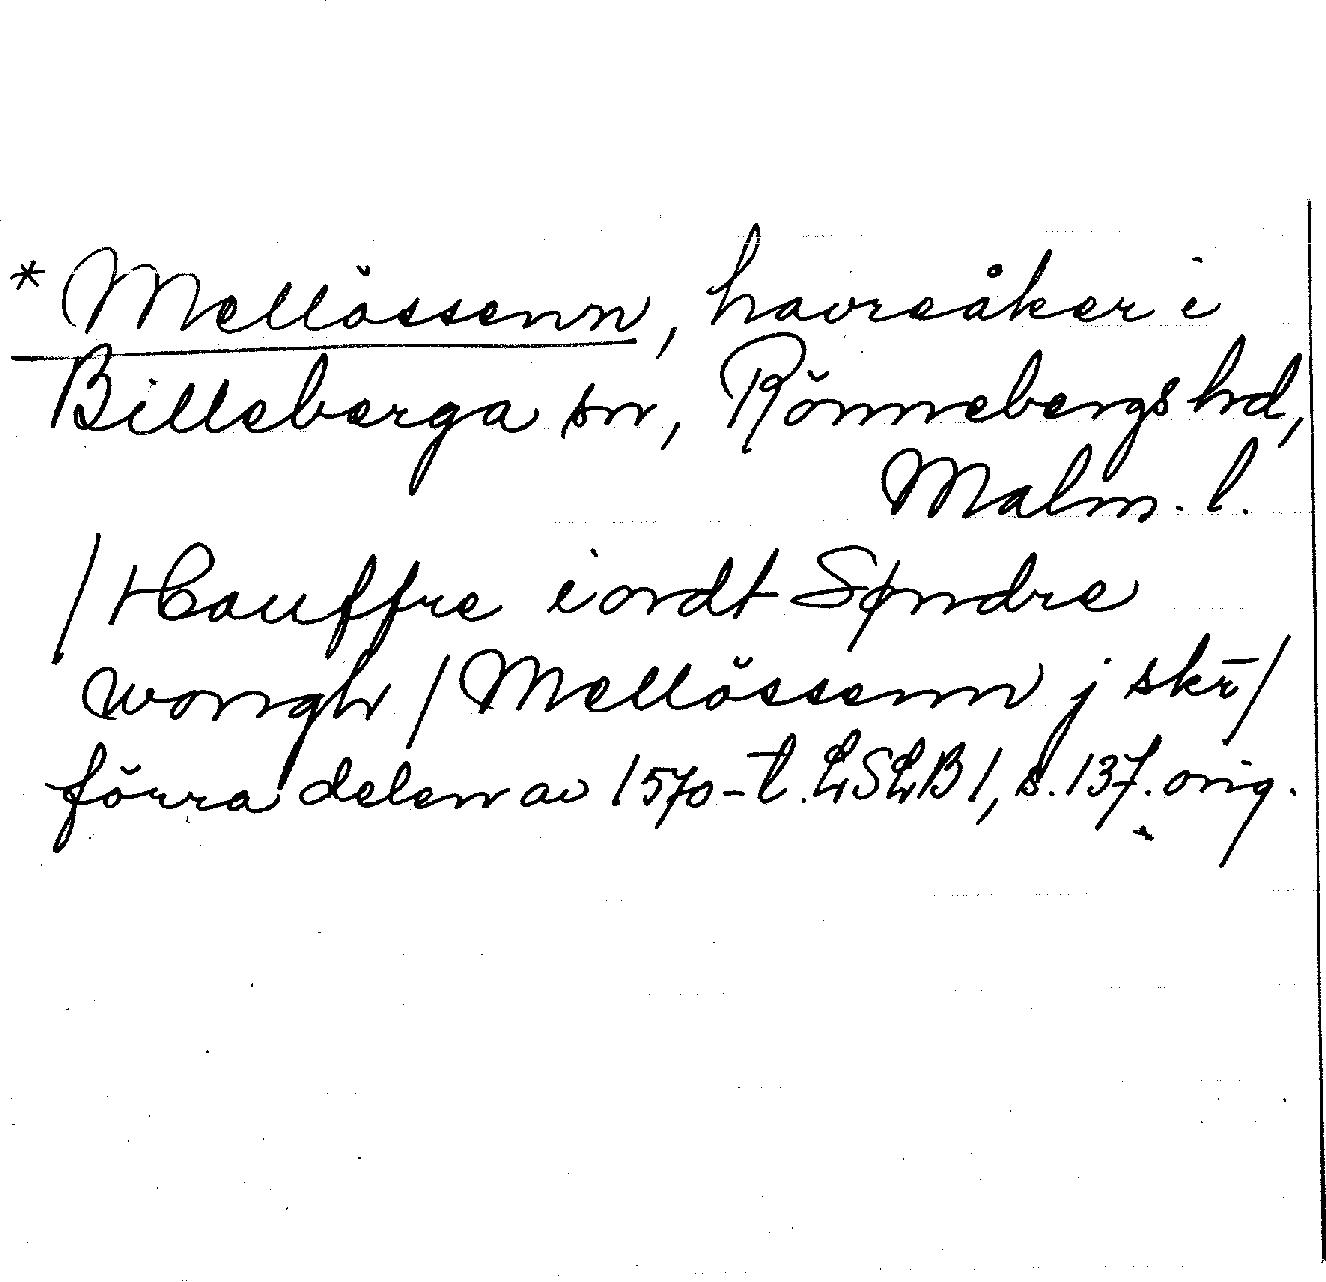 * Mellössenn, havreåker i
Billeberga sn, Rönnebergs hd,
Malm. l.
/Hauffre iordt Søndre
wongh/Mellössenn j skr̄/
förra delen av 1570-t. LSLB1, s. 137. orig.